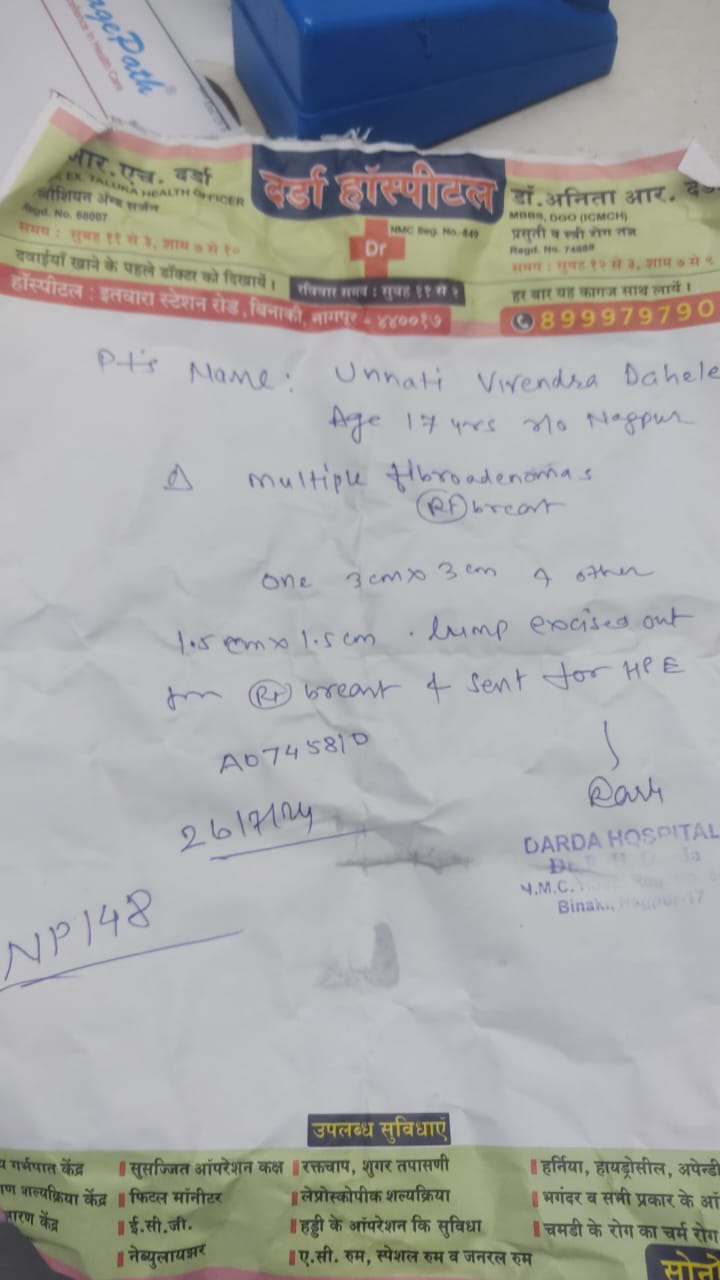 agePath®
Excellence In Health Care
आर.एच. दर्डा
EX. TALUKA HEALTH OFFICER
Regd. No. 68007
समय : सुबह ११ से ३, शाम ७ से १०
दवाईयाँ खाने के पहले डॉक्टर को दिखायें।
दर्डा हॉस्पीटल
NMC Reg. No.-849
Dr
रविवार समय : सुबह ११ से २
डॉ. अनिता आर.
MBBS, DGO (ICMCH)
प्रसुती व स्त्री रोग तज्ञ
Regd. No. 74888
समय : सुबह १२ से ३, शाम ७ से ९
हर बार यह कागज साथ लायें।
हॉस्पीटल : इतवारा स्टेशन रोड, बिनाकी, नागपुर - ४४००१७
899979790
Pt's Name: Unnati Virendra Dahele
Age 17 yrs r/o Nagpur
Δ multiple fibroadenomas
(Rt) breast
One 3cm x 3cm & other
1.5cm x 1.5cm . lump excised out
from (Rt) breast & sent for HPE
A0745810
26/7/24
DARDA HOSPITAL
Dr.
N.M.C.
Binaki, Nagpur-17
NP148
उपलब्ध सुविधाएँ
गर्भपात केंद्र
शल्यक्रिया केंद्र
केंद्र
सुसज्जित ऑपरेशन कक्ष
फिटल मॉनीटर
ई.सी.जी.
नेब्युलायझर
रक्तचाप, शुगर तपासणी
लेप्रोस्कोपीक शल्यक्रिया
हड्डी के ऑपरेशन कि सुविधा
ए.सी. रुम, स्पेशल रुम व जनरल रुम
हर्निया, हायड्रोसील, अपेन्डी
भगंदर व सभी प्रकार के ऑ
चमडी के रोग का चर्म रोग
सोनो